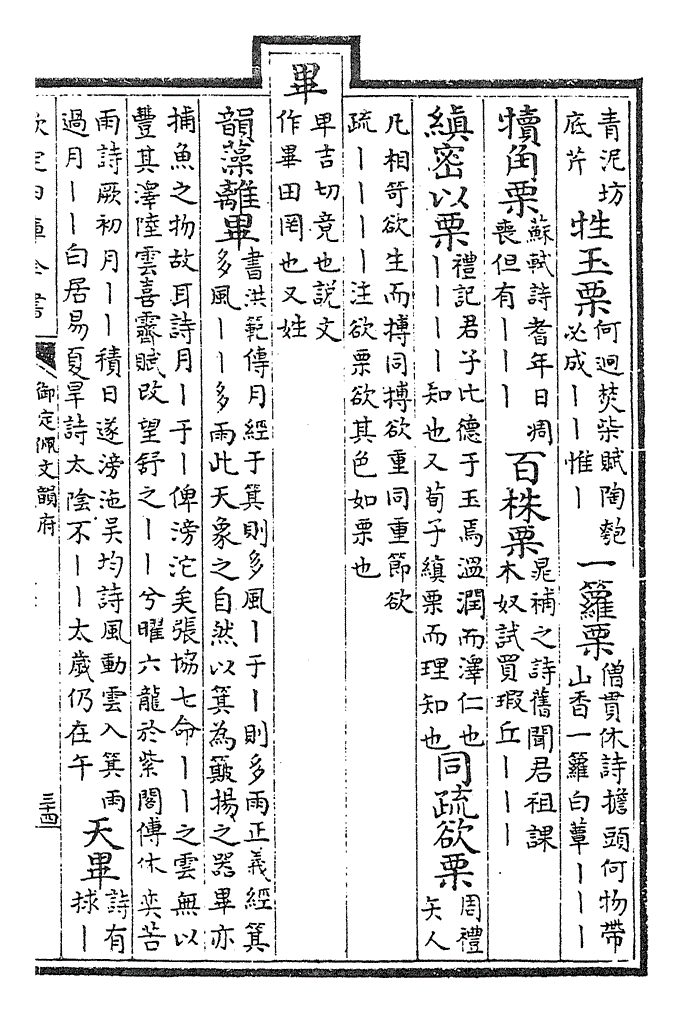 青泥坊底芹 牲玉栗 何迥焚柴賦陶匏必成丨丨惟丨 一籮栗 僧貫休詩擔頭何物帶山香一籮白蕈丨丨丨
犢角栗 蘇軾詩耆年日凋喪但有丨丨丨 百株栗 晁補之詩舊聞君祖課木奴試買瑕丘丨丨丨
縝密以栗 禮記君子比德于玉焉溫潤而澤仁也丨丨丨丨知也又荀子縝栗而理知也 同疏欲栗 周禮矢人
凡相笴欲生而摶同摶欲重同重節欲疏丨丨丨丨注欲栗欲其色如栗也
畢
卑吉切竟也說文作畢田罔也又姓
韻藻離畢 書洪範傳月經于箕則多風丨于丨則多雨正義經箕多風丨丨多雨此天象之自然以箕為簸揚之器畢亦
捕魚之物故耳詩月丨于丨俾滂沱矣張協七命丨丨之雲無以豐其澤陸雲喜霽賦改望舒之丨丨兮曜六龍於紫閣傅休奕苦
雨詩厥初月丨丨積日遂滂沲吴均詩風動雲入箕雨過月丨丨白居易夏旱詩太陰不丨丨太歲仍在午 天畢 詩有捄丨
欽定四庫全書
御定佩文韻府
三十四